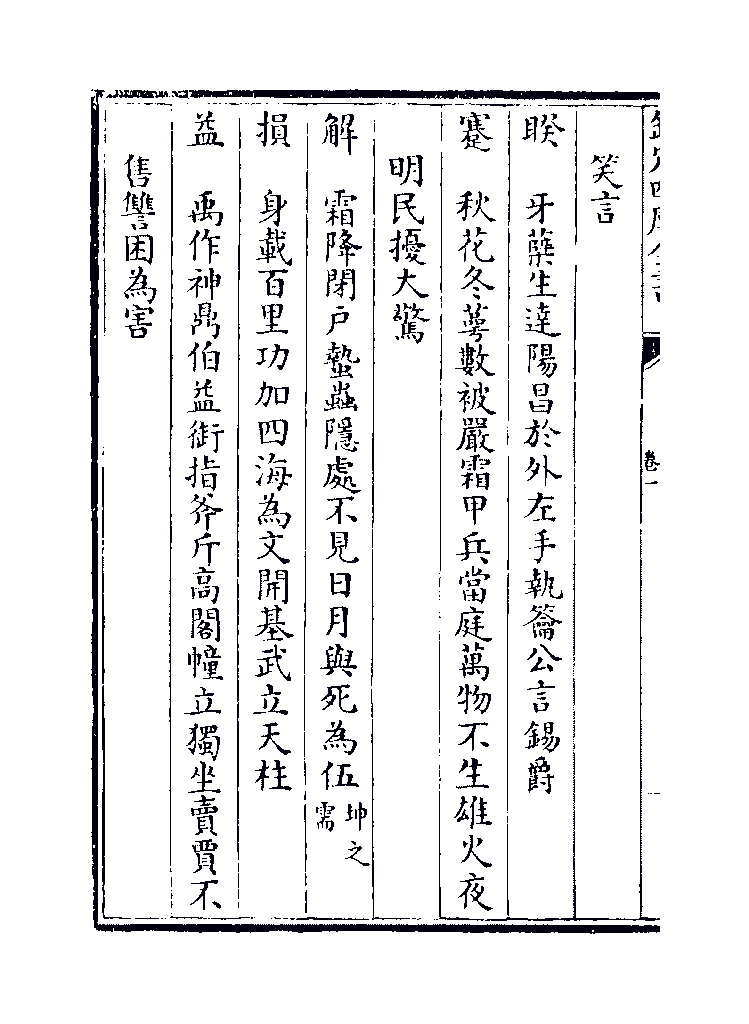 卷一
笑言
睽 牙蘖生達陽昌於外左手執籥公言錫爵
蹇 秋花冬萼數被嚴霜甲兵當庭萬物不生雄火夜
明民擾大驚
解 霜降閉戶蟄蟲隱處不見日月與死為伍坤之需
損 身載百里功加四海為文開基武立天柱
益 禹作神鼎伯益銜指斧斤高閣幢立獨坐賣賈不
售讐困為害